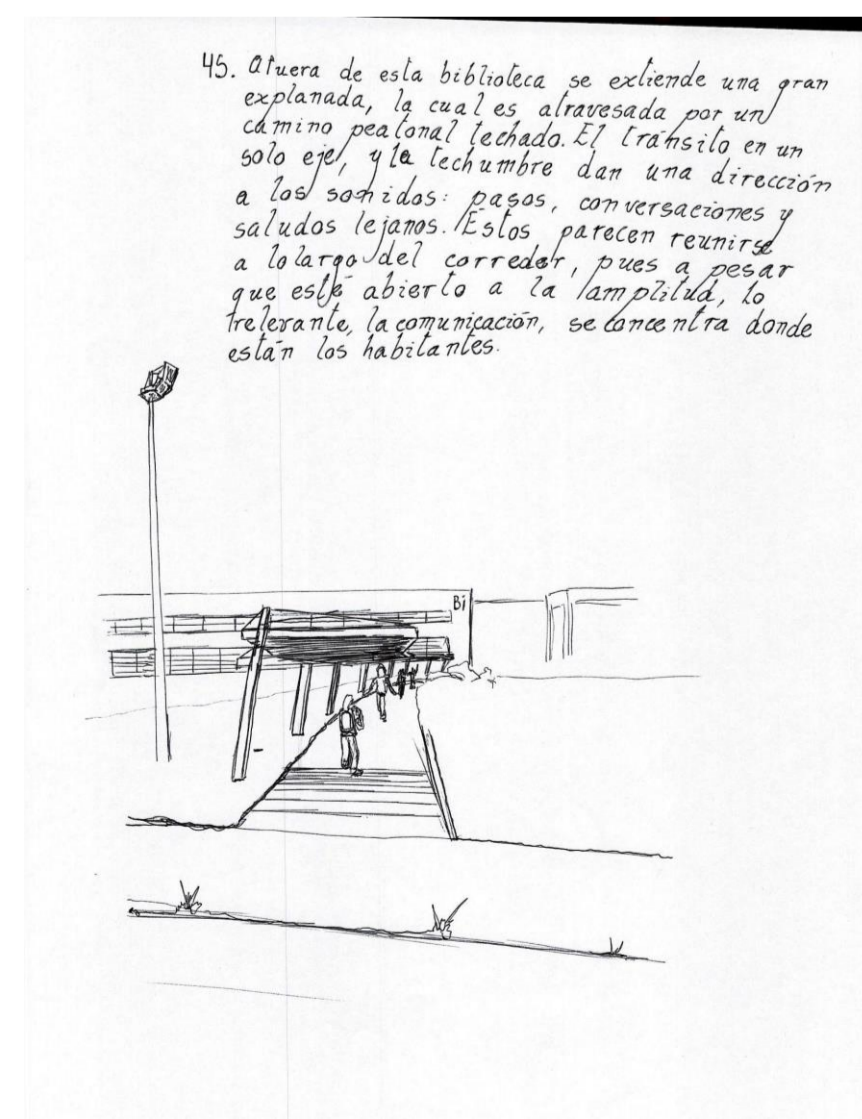 45. Afuera de esta biblioteca se extiende una gran
explanada, la cual es atravesada por un
camino peatonal techado. El tránsito en un
solo eje, y la techumbre dan una dirección
a los sonidos: pasos, conversaciones y
saludos lejanos. Éstos parecen reunirse
a lo largo del corredor, pues a pesar
que esté abierto a la amplitud, lo
relevante, la comunicación, se concentra donde
están los habitantes.
Bi